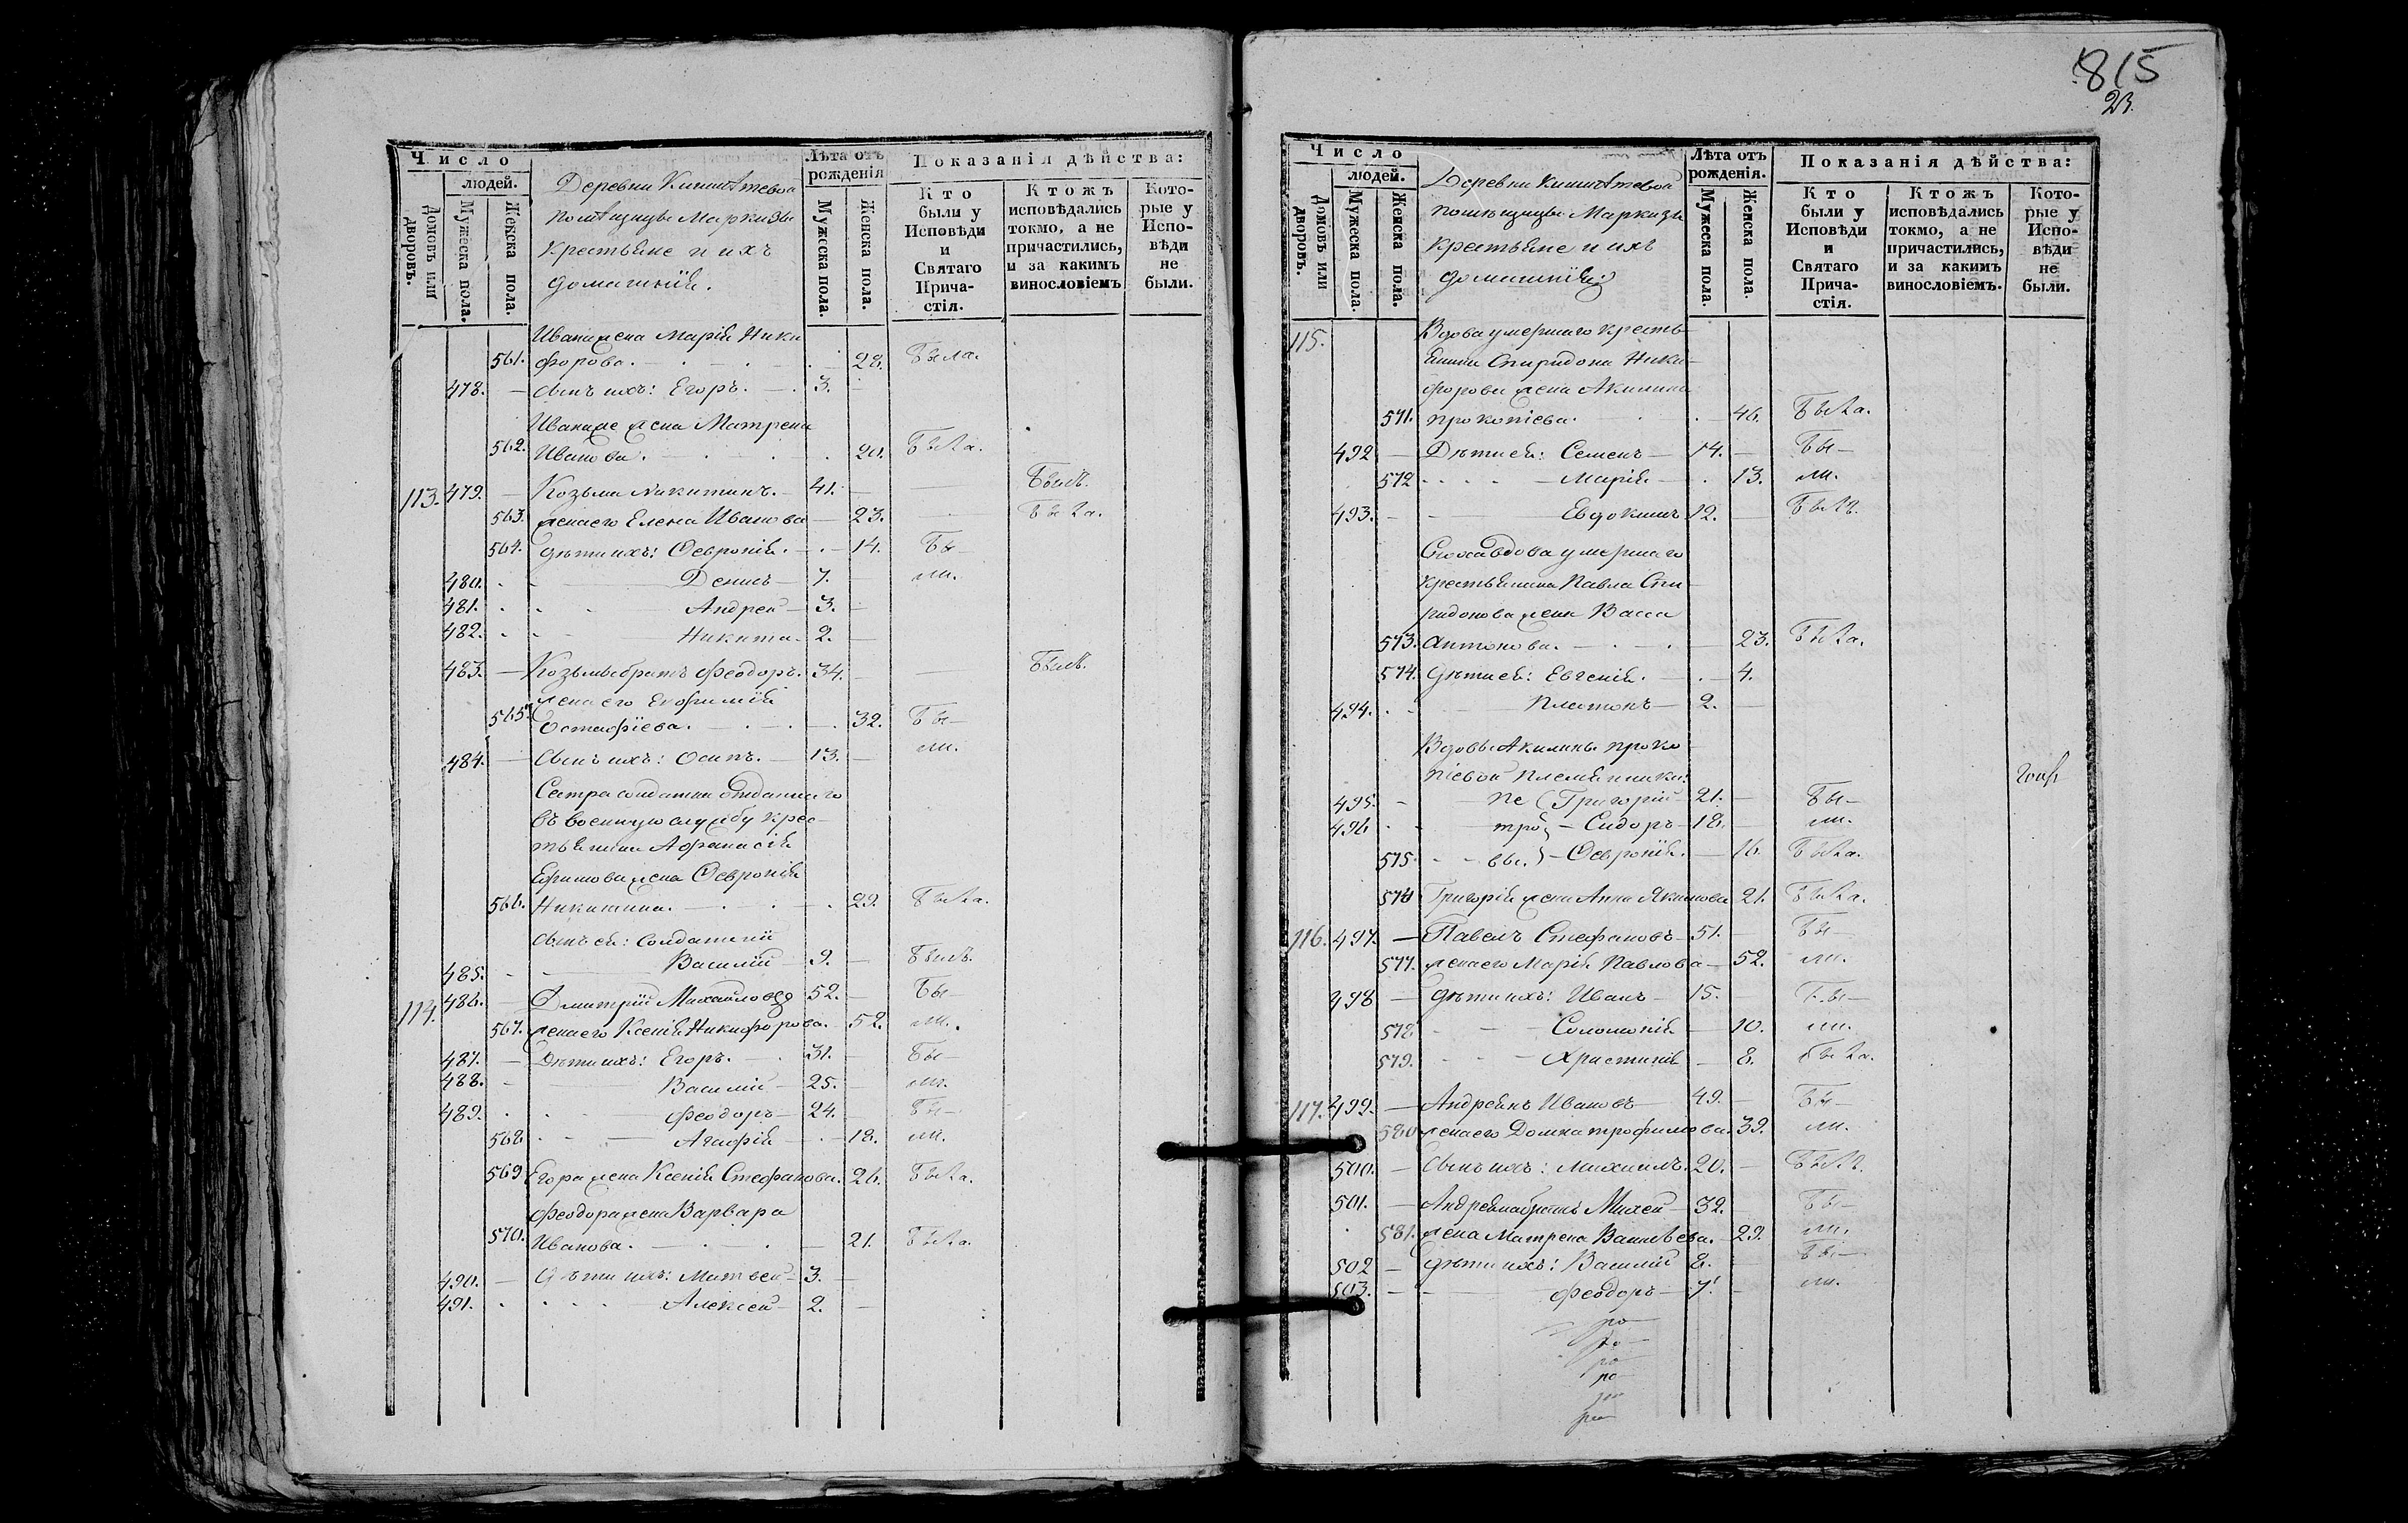 815
23.
Число
людей.
Домовъ или дворовъ.
Мужеска пола.
Женска пола.
Деревни
помѣщицы Маркизы
крестьяне и ихъ
домашнія.
Лѣта отъ рожденія
Мужеска пола.
Женска пола.
Показанія дѣйства:
Кто были у Исповѣди и Святаго Причастія.
Ктожъ исповѣдались токмо, а не причастились, и за какимъ винословіемъ
Которые у Исповѣди не были.
Ивана жена Марія Ники
561. форова. 28. Была.
478. — сынъ ихъ: Егоръ. — 3.
жена Матрена
562. Иванова. 20. Была.
113. 479. — Козьма Никитинъ. — 41. Былъ.
563. жена его Елена Иванова — 23. была.
564. дѣти ихъ: Феvронія. — 14. Бы—
480. Денисъ — 7. ли.
481. Андрей — 3.
482. Никита — 2.
483. — Козьмы братъ Феодоръ. 34. Былъ.
жена его Евфимія
565. Остафіева. 32. Бы—
484. — Сынъ ихъ: Осипъ. — 13. ли.
Сестра солдатка отданнаго
въ военную службу крес—
тьянина Афанасія
Ефимова жена Феvронія
566. Никитина. 29. Была.
сынъ ей: солдатскій
485. Василій — 9. Былъ.
114. 486. — Дмитрій Михайловъ 52. Бы—
567. жена его Ксенія Никифорова. 52. ли.
487. — Дѣти ихъ: Егоръ. 31. Бы—
488. Василій — 25. ли.
489. Феодоръ — 24. Бы—
568 Агафія — 18. ли.
569 Егора жена Ксенія Стефанова. 26. Была.
Феодора жена Варвара
570. Иванова. 21. Была.
490. — Дѣти ихъ: Матвей — 3.
491. Алексей — 2.
Число
людей.
Домовъ или дворовъ.
Мужеска пола.
Женска пола.
Деревни
помѣщицы Маркизы
крестьяне и ихъ
домашнія
Лѣта отъ рожденія.
Мужеска пола.
Женска пола.
Показанія дѣйства:
Кто были у Исповѣди и Святаго Причастія.
Ктожъ исповѣдались токмо, а не причастились, и за какимъ винословіемъ.
Которые у Исповѣди не были.
115. Вдова умершаго кресть—
янина Спиридона Ники—
форова жена Акилина
571. Прокопіева. 46. Была.
492 — Дѣти ей: Семенъ — 14. Бы—
572 Марія — 13. ли.
493. Евдокимъ 12. Былъ.
Сноха вдова умершаго
крестьянина Павла Спи—
ридонова жена Васса
573. Антонова. 23. Была.
574. Дѣти ей: Евгенія. 4.
494. Платонъ — 2.
Вдовы Акилины Проко—
піевой племянники:
495. Пе Григорій — 21. Бы—
496 тро — Сидоръ — 18. ли.
575. вы. — Феvронія. — 16. Была.
576 Григорія жена Анна Якимова 21. Была.
116. 497. — Павелъ Стефановъ — 51. Бы—
577. жена его Марія Павлова — 52. ли.
498 — Дѣти ихъ: Иванъ — 15. Бы—
578 Соломонія — 10. ли.
579. Христинія — 8. была.
117. 499. — Андреянъ Ивановъ 49. Бы—
580 жена его Домна Трофимова. 39. ли.
500. — Сынъ ихъ: Михаилъ. 20. Былъ.
501. — Андреяна братъ Михей — 32. Бы—
581. жена Матрена Васильева. — 29. ли.
502 — Дѣти ихъ: Василій 8. Бы—
503. Феодоръ — 7. ли.
ро
ро
ро
ро